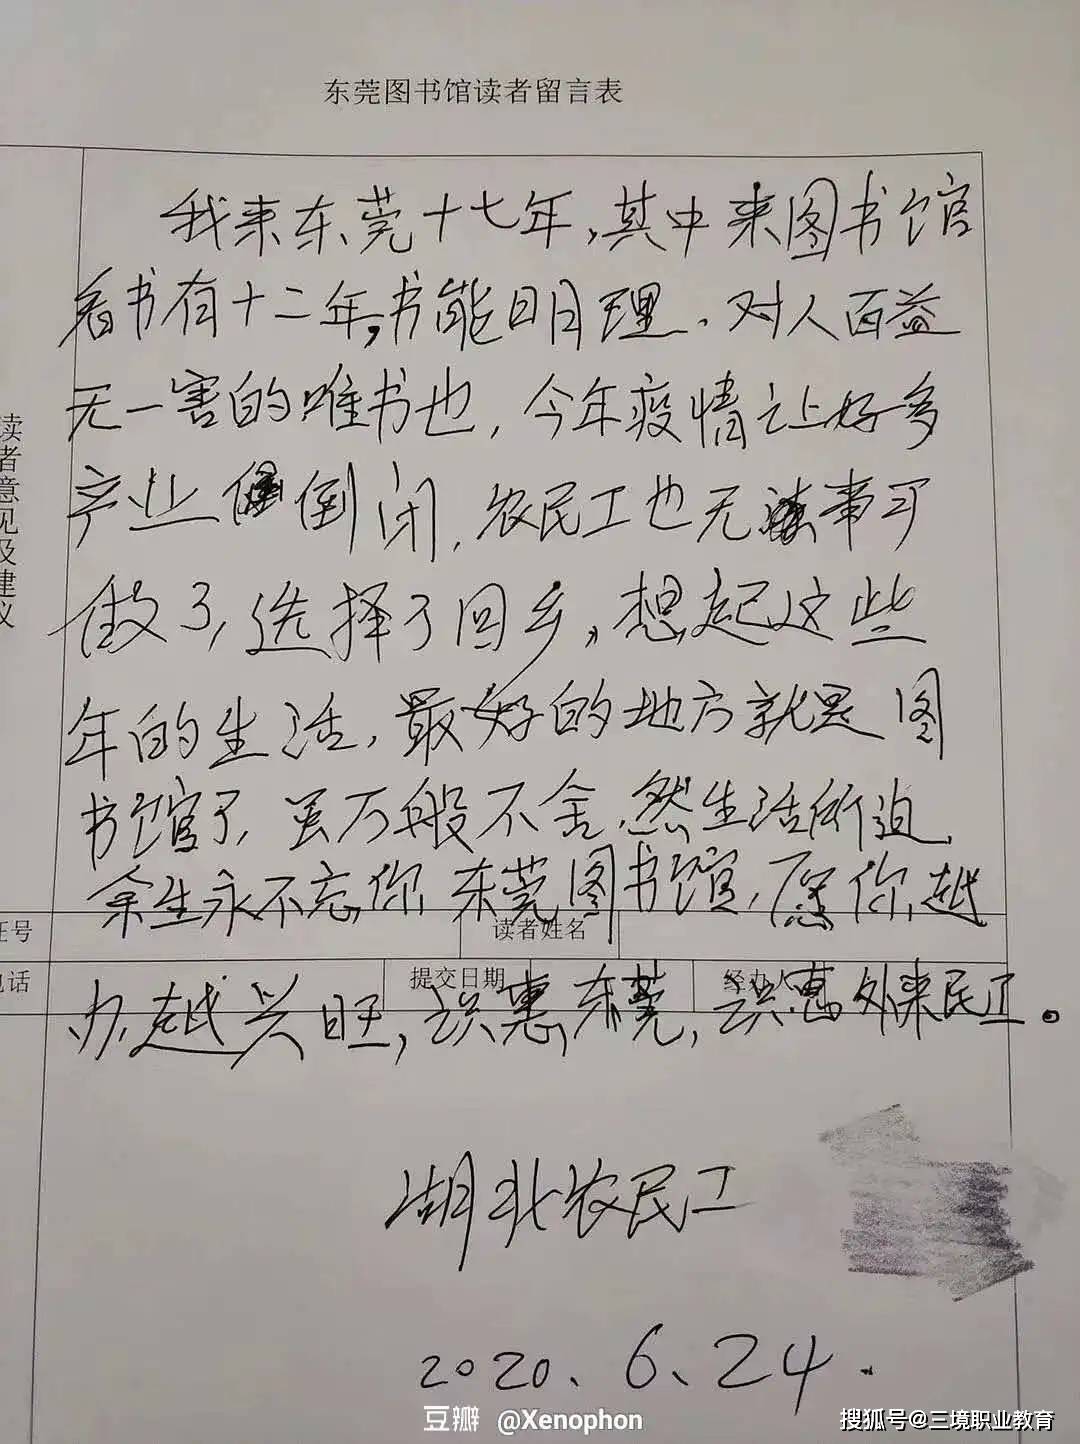 东莞图书馆读者留言表
读者意见及建议
我来东莞十七年,其中来图书馆
看书有十二年,书能明理,对人百益
无一害的唯书也,今年疫情让好多
产业倒闭,农民工也无事可
做了,选择了回乡,想起这些
年的生活,最好的地方就是图
书馆了,虽万般不舍,然生活所迫,
余生永不忘你,东莞图书馆,愿你越
证号 读者姓名
办越兴旺,识惠东莞,识惠外来民工。
电话 提交日期 经办人
湖北农民工
2020.6.24.
豆瓣 @Xenophon
搜狐号@三境职业教育